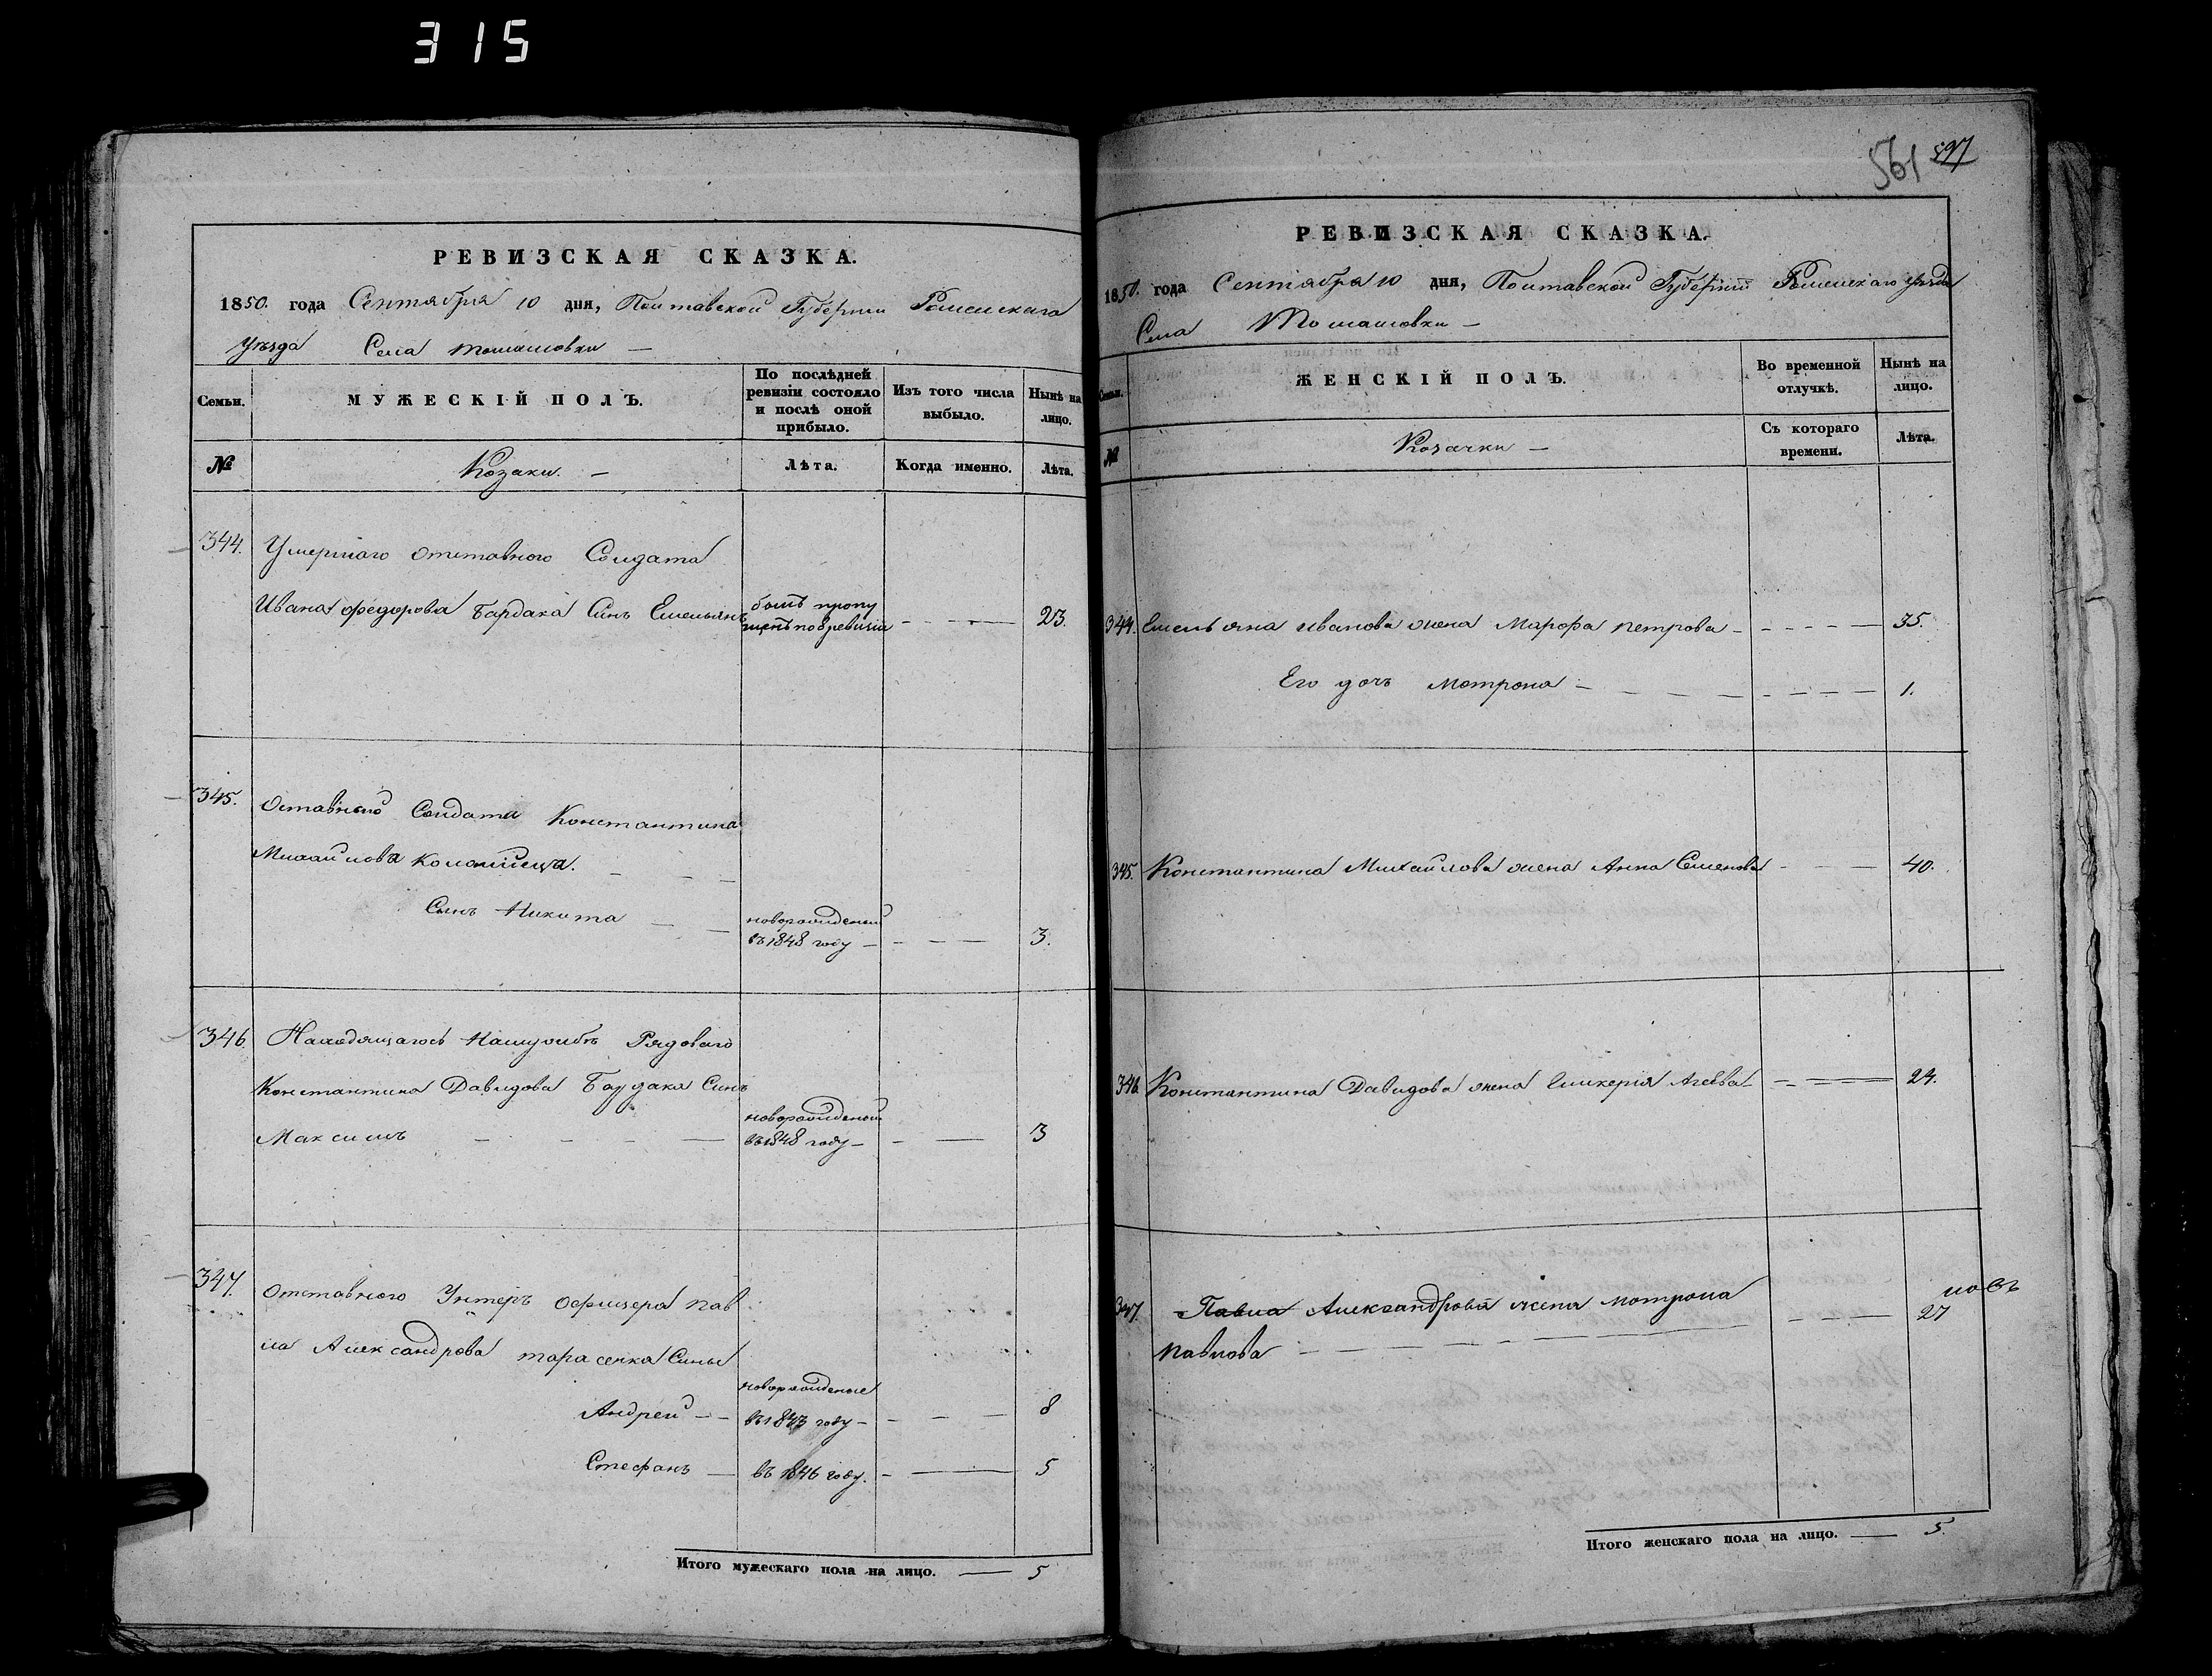 315
РЕВИЗСКАЯ СКАЗКА.
1850. года Сентября 10 дня, Полтавской Губернии Роменскаго
Уѣзда Села Томашовки —
Семьи.
МУЖЕСКІЙ ПОЛЪ.
По послѣдней ревизіи состояло и послѣ оной прибыло.
Изъ того числа выбыло.
Нынѣ на лицо.
№
Козаки. —
Лѣта.
Когда именно.
Лѣта.
344. Умершаго отставного Солдата
Ивана Федорова Бардака Синъ Емельянъ
былъ пропу
щенъ по 8 ревизіи
23.
345. Оставного Солдата Константина
Михайлова Коломійца.
Сынъ Никита
новорожденый
въ 1848 году —
3.
346. Находящагось Наслужбѣ Рядоваго
Константина Давидова Бардака Синъ
Максимъ
новорожденый
въ 1848 году —
3
347. Отставного Унтеръ Офицера Пав
ла Александрова Тарасенка Сины
новорожденые
Андрей — — въ 1843 году — 8
Стефанъ — въ 1846 году. — 5
Итого мужескаго пола на лицо. — 5
561 597
РЕВИЗСКАЯ СКАЗКА.
1850. года Сентября 10 дня, Полтавской Губерніи Роменскаго уѣзда
Села Томашовки —
Семьи.
ЖЕНСКІЙ ПОЛЪ.
Во временной отлучкѣ.
Нынѣ на лицо.
№
Козачки —
Съ котораго времени.
Лѣта.
344. Емельяна Иванова жена Марфа Петрова — 35.
Его дочь Мотрона — 1.
345. Константина Михайлова жена Анна Семенова — 40.
346. Константина Давидова жена Гликерія Агеева — 24.
347. Павла Александрова жена Мотрона
27
Павлова —
Итого женскаго пола на лицо. — 5.